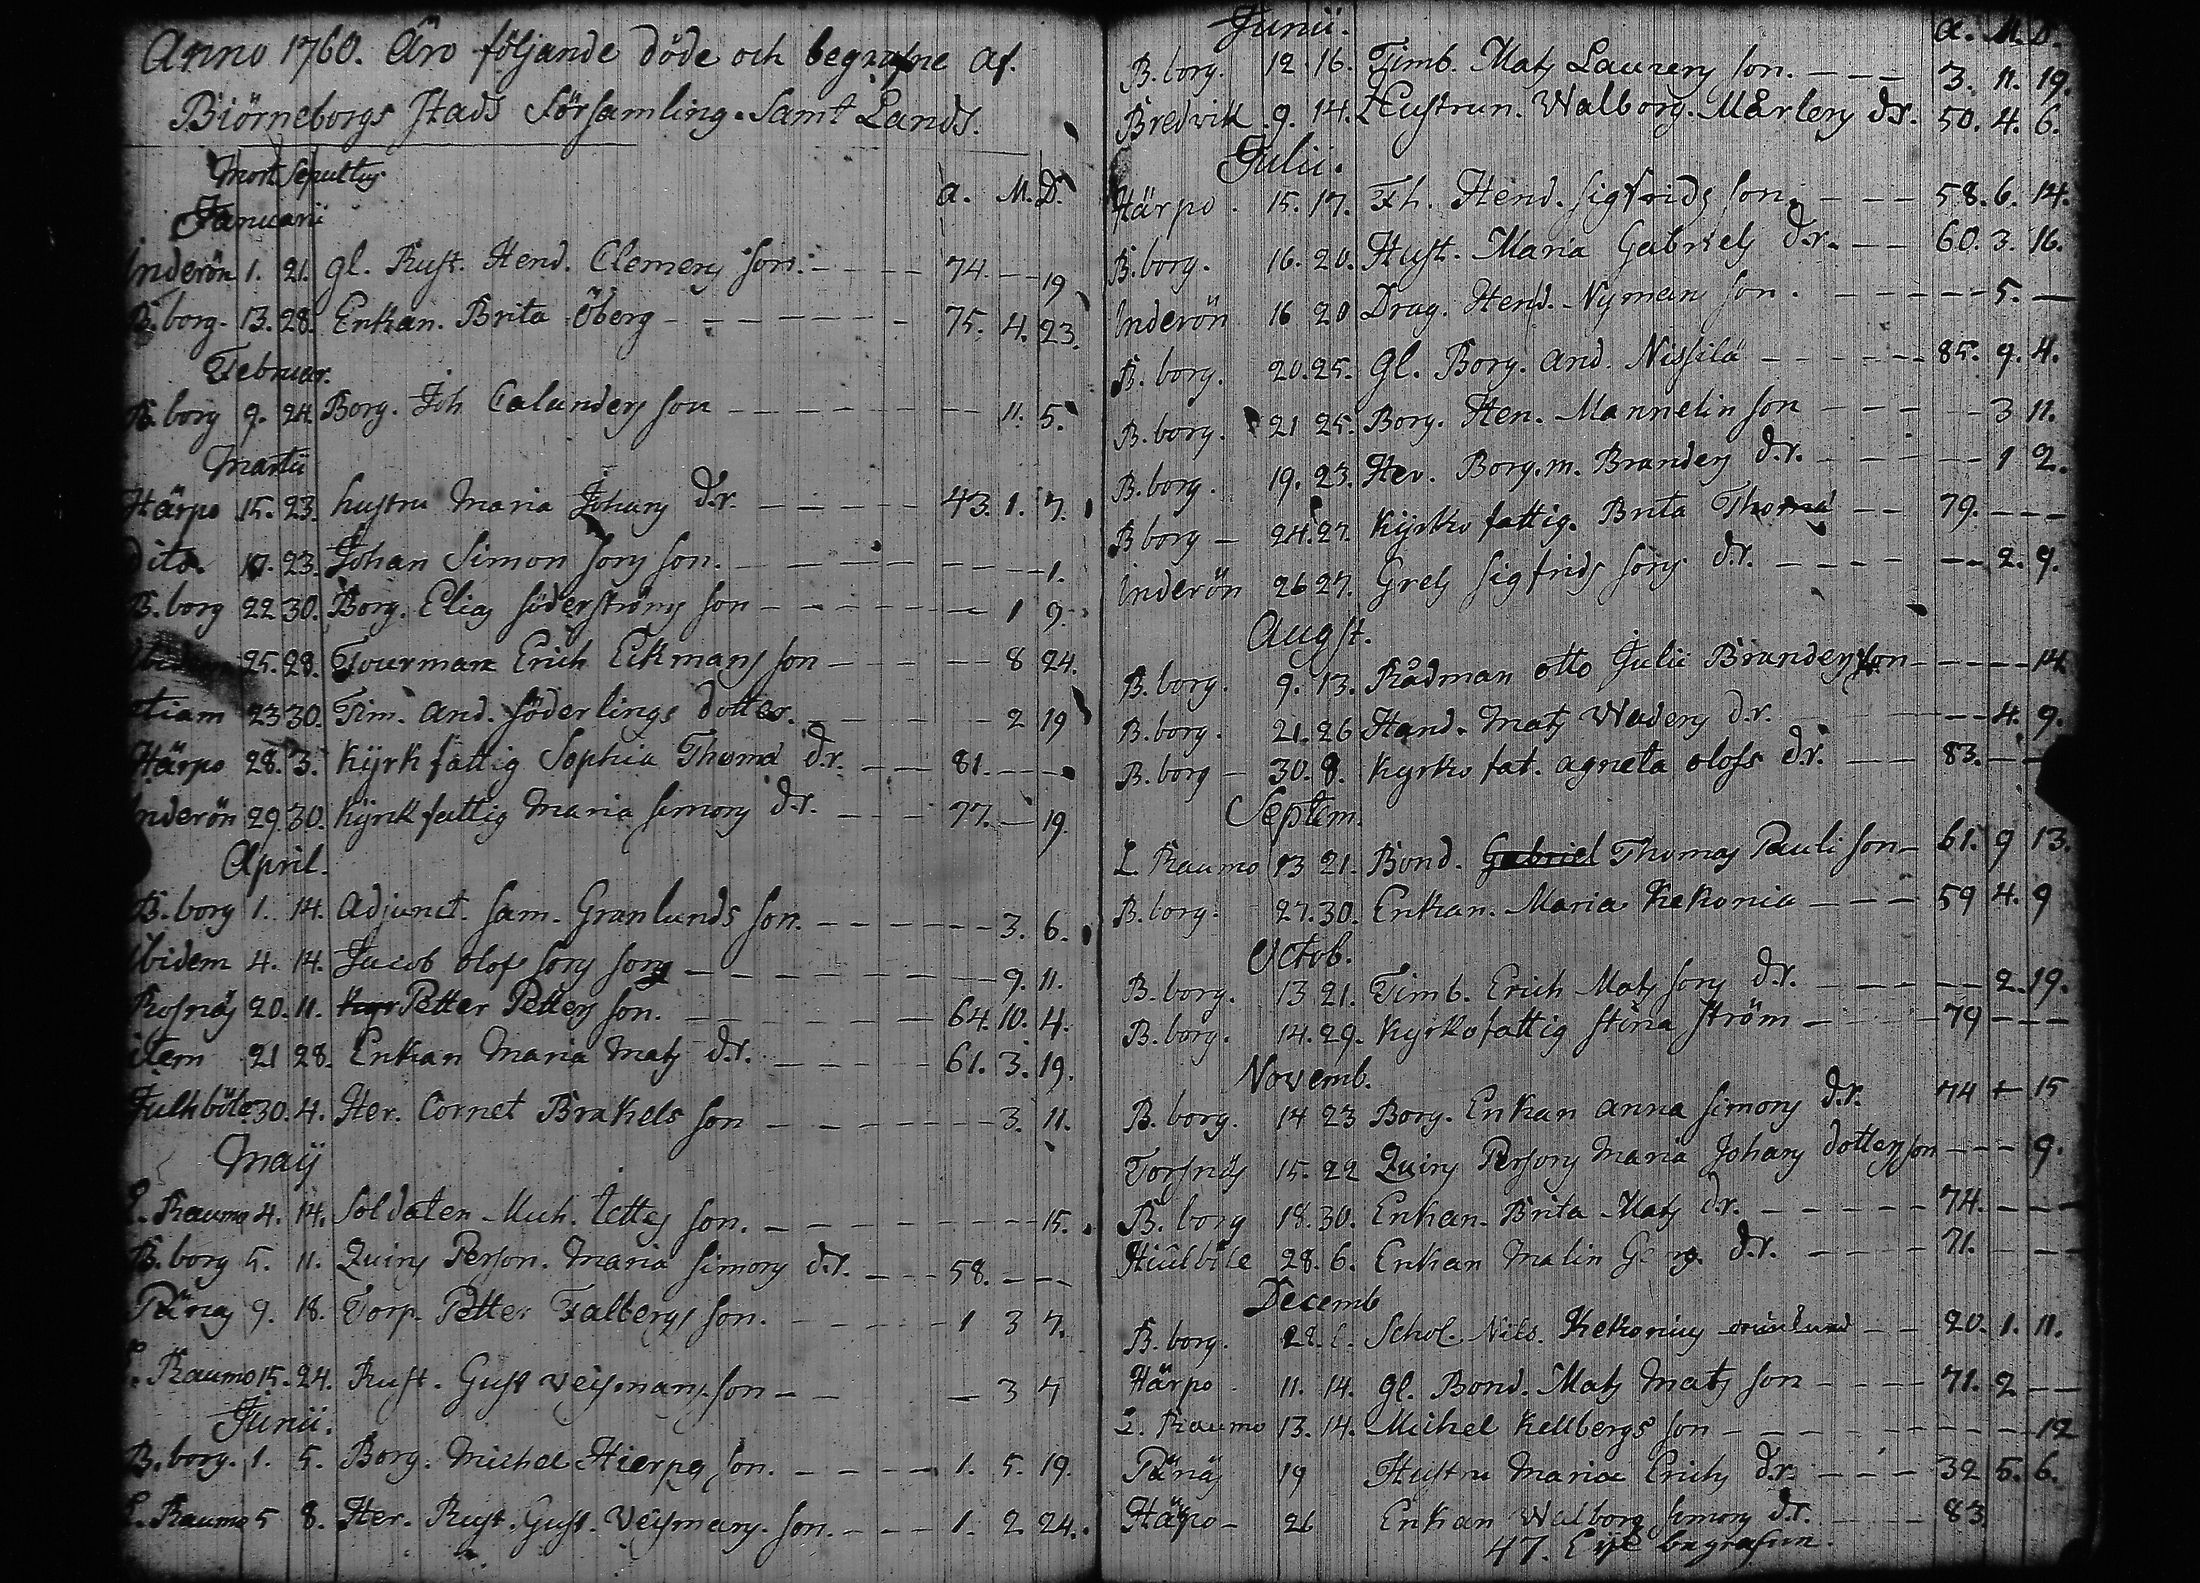 Anno 1760. Äro följande döde och begrafne af.
Biörneborgs Stads Församling. Samt Lands.
Mort Sepultus
a. M. D.
Januarii
Inderön 1. 21. gl. Rust. Hend. Clemens son. 74. — 19
B. borg. 13. 28. Enkan. Brita Öberg 75. 4. 23.
Februar.
B. borg 9. 24. Borg. Joh Calanders son 11. 5.
Martii
Härpo 15. 23. hustru Maria Johans d.r. 43. 1. 7.
Dito. 17. 23. Johan Simon sons son. 1.
B. borg 22 30. Borg. Elias Söderströms son 1 9.
25. 28. Erich Eckmans son 8 24.
etiam 23 30. Tim. And. Söderlings dotter. 2 19
Härpo 28. 3. Kyrk fattig Sophia Thoma d.r. 81.
Inderön 29. 30. Kyrk fattig Maria Simons d.r. 77. — 19.
April.
B. borg 1. 14. Adjunct. Sam. Granlunds son. 3. 6.
Ibidem 4. 14. Jacob Olofs sons son 9. 11.
Rosnäs 20. 11. Petter Petters son. 64. 10. 4.
item 21 28. Enkan Maria Mats d.r. 61. 3. 19.
30. 4. Her. Cornet Brakels son 3. 11.
Maij
L. Raumo 4. 14. Soldaten Mich. son. 15.
B. borg 5. 11. Quins Person. Maria Simons d.r. 58.
Pänäs 9. 18. Torp. Petter Falbergs son. 1 3 7.
L. Raumo 15. 24. Rust. Gust Veismans son 3 7
Junii.
B. borg. 1. 5. Borg. Michel Hierpes son. 1. 5. 19.
L. Raumo 5 8. Her. Rust. Gust. Veismans. son. 1. 2 24.
Junii.
a. M. D.
B. borg. 12. 16. Timb. Mats Laurens son. 3. 11. 19.
Bredvik 9. 14. Hustrun. Walborg. Mårtens d.r. 50. 4. 6.
Julii.
Härpo. 15. 17. Hend. Sigfrids son. 58. 6. 14.
B. borg. 16. 20. Hust. Maria Gabriels d.r. 60. 3. 16.
Inderön 16 20 Drag. Hend. Nymans son. 5. —
B. borg. 20. 25. gl. Borg. And. Nissilä 85. 9. 4.
B. borg. 21 25. Borg. Hen. Mannelin son 3 11.
B. borg. 19. 23. Her. Borg. m. Branders d.r. 1 2.
B. borg — 24. 27. Kyrko fattig. Brita Thoma 79.
Inderön 26 27. Grels Sigfrids sons d.r. 2. 9.
Augst.
B. borg. 9. 13. Rådman Otto Julii Branders son 14
B. borg. 21. 26 Hand. Mats Waders d.r. 4. 9.
B. borg — 30. 8. Kyrko fat. Agneta Olofs d.r. 83.
Septem.
L. Raumo 13 21. Bond. Gabriel Thomas Pauli son 61. 9 13.
B. borg. 27. 30. Enkan. Maria Kekonia 59 4. 9
Octob.
B. borg. 13 21. Timb. Erich Mats sons d.r. 2. 19.
B. borg. 14. 29. Kyrkofattig Stina Ström 79
Novemb.
B. borg. 14 23 Borg. Enkan Anna Simons d.r. 74 + 15
Torsnäs 15. 22 Quins Persons Maria Johans dotters son 9.
B. borg 18. 30. Enkan. Brita Mats d.r. 74.
Hiulböle 28. 6. Enkan Malin d.r. 71.
Decemb
B. borg. Schol. Nils. Kekonius 20. 1. 11.
Härpo. 11. 14. gl. Bond. Mats Mats son 71. 2
L. Raumo 13. 14. Michel Kellbergs son 12
Pänäs 19 Hustru Maria Erichs d.r. 32 5. 6.
Härpo — 26 Enkan Walborg Simons d.r. 83
47. begrafne.